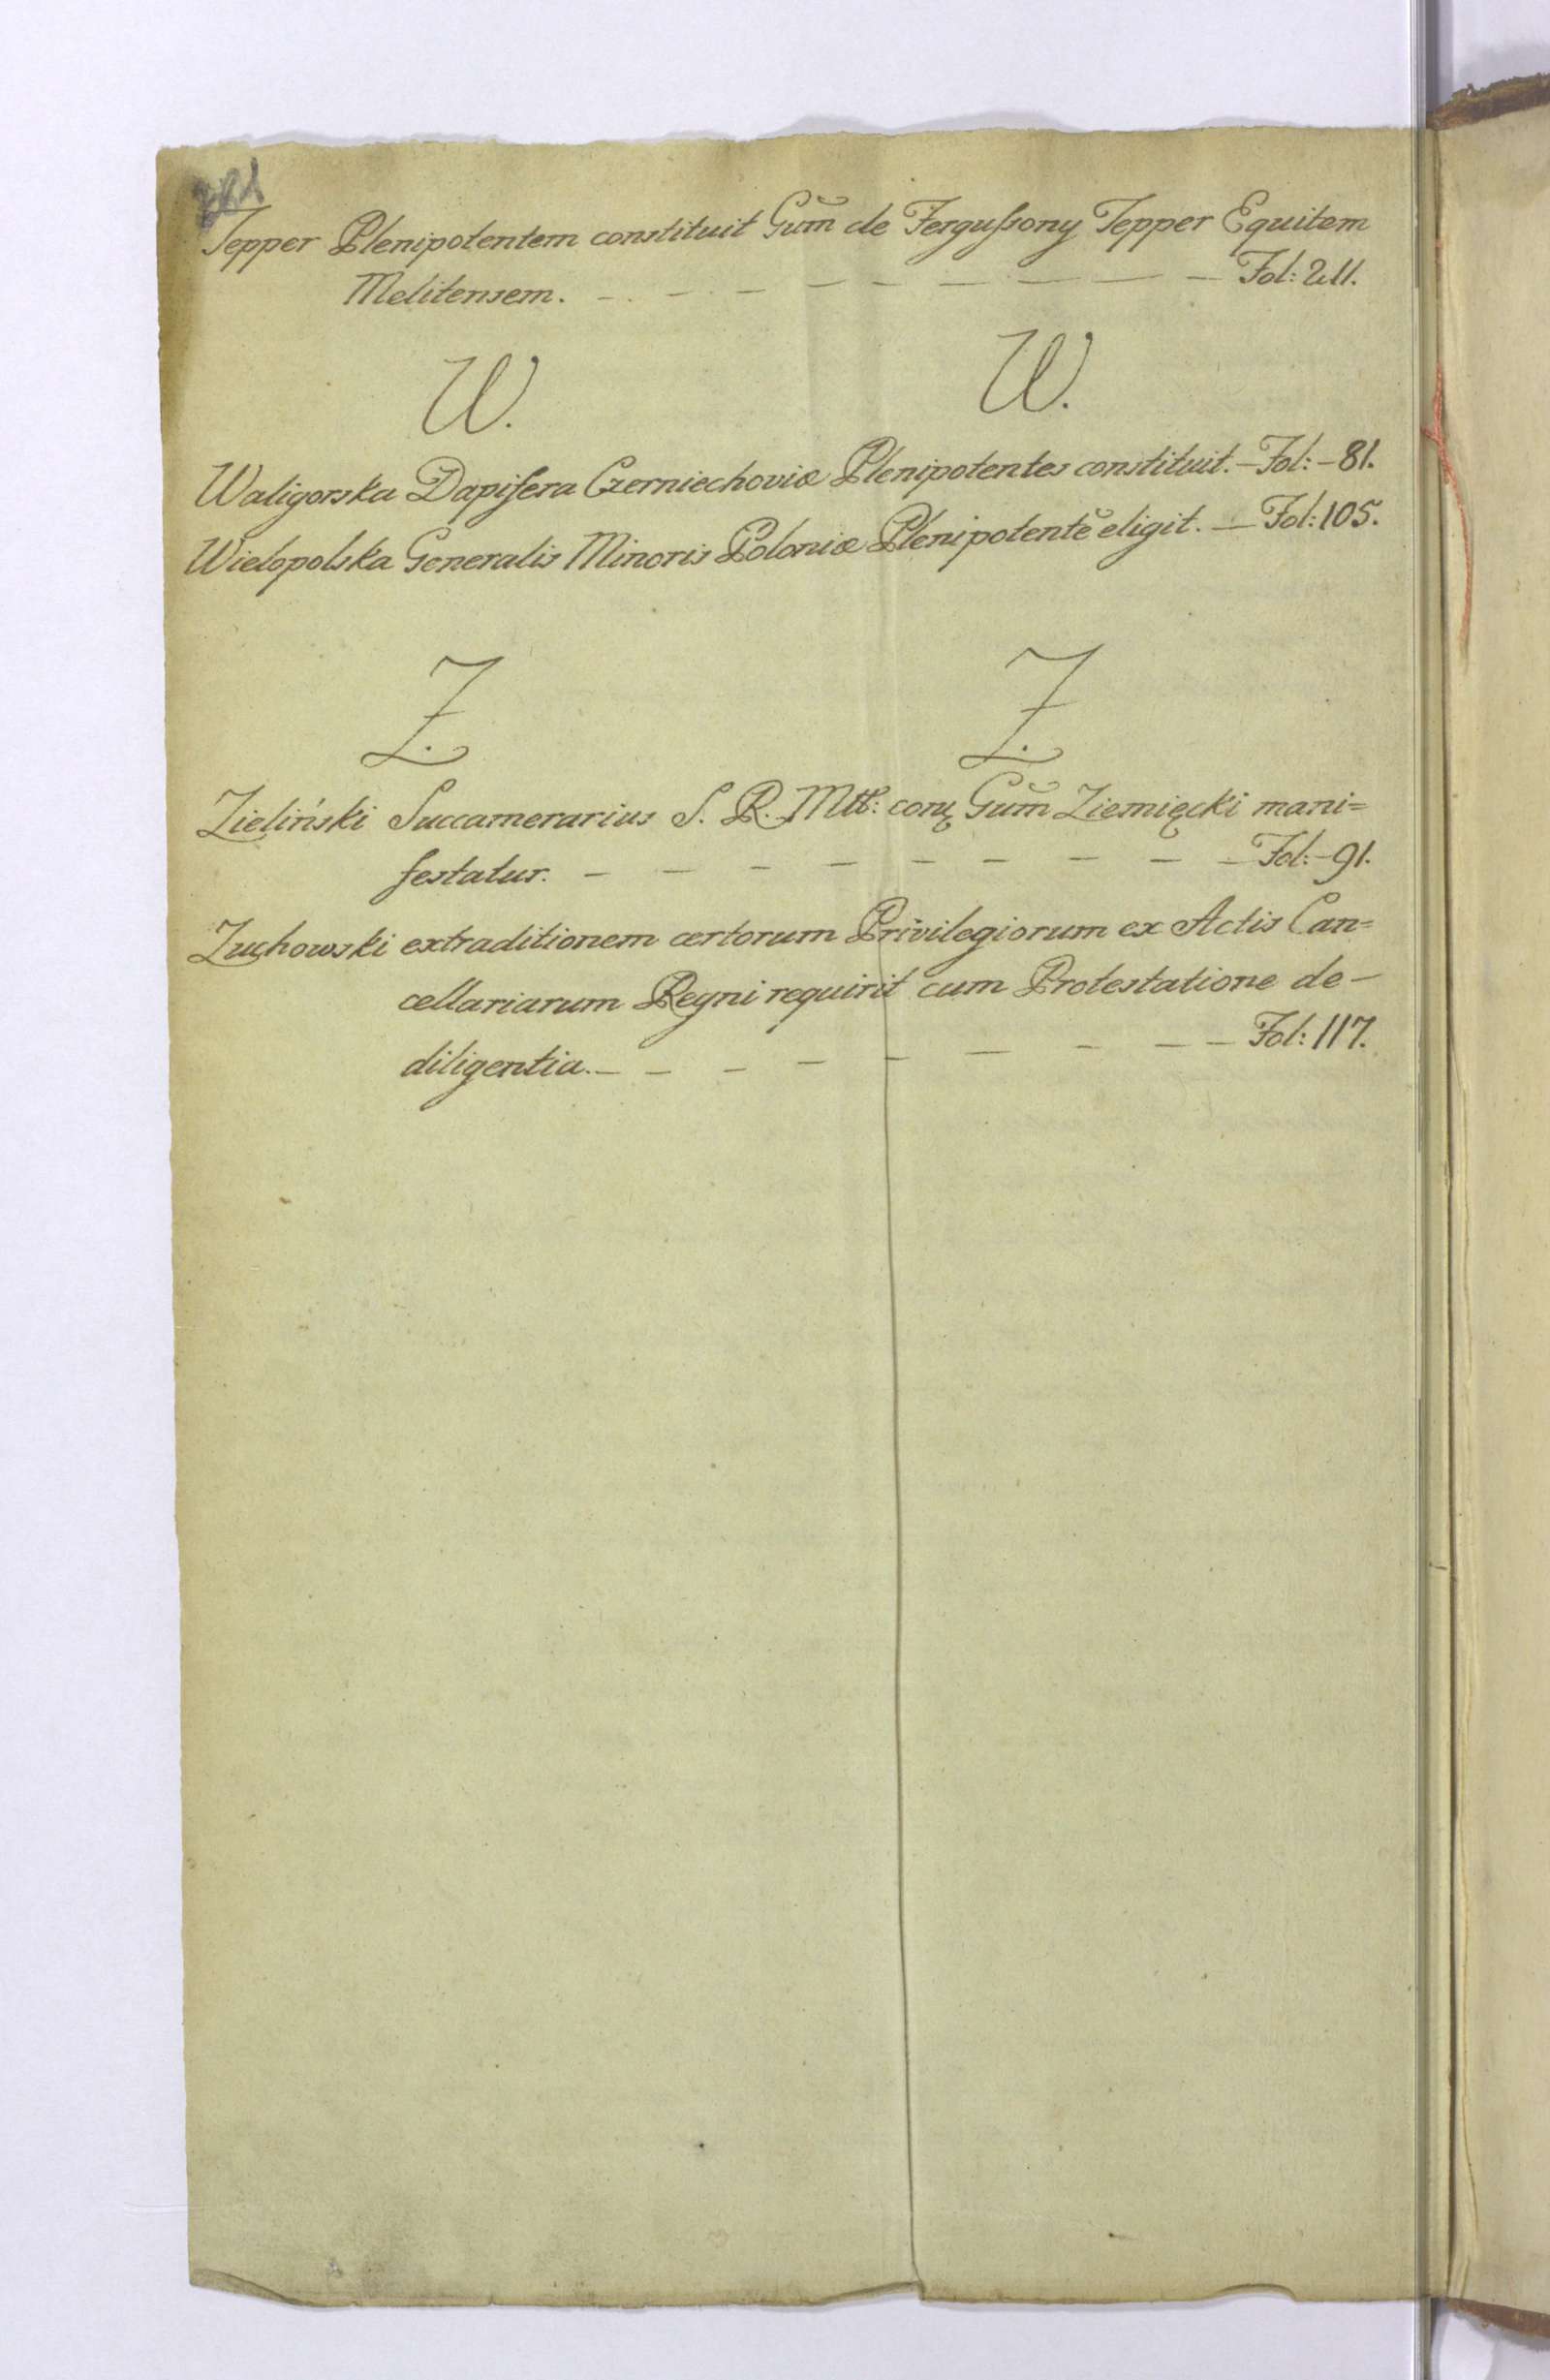 Tepper Plenipotentem constituit Gum̃ de Fergussony Tepper Equitem
Melitensem. - - - - - - - - - Fol: 211.
W. W.
Waligorska Dapifera Czerniechoviæ Plenipotentes constituit. - Fol: - 81.
Wielopolska Generalis Minoris Poloniæ Plenipotentẽ eligit. - Fol: 105.
Z. Z.
Zieliński Succamerarius S. R. Mtt: conţ Gum̃ Ziemięcki mani=
festatur. - - - - - - - - - Fol: - 91.
Zuchowski extraditionem certorum Privilegiorum ex Actis Can=
cellariarum Regni requirit cum Protestatione de -
diligentia. - - - - - - - - - Fol: 117.